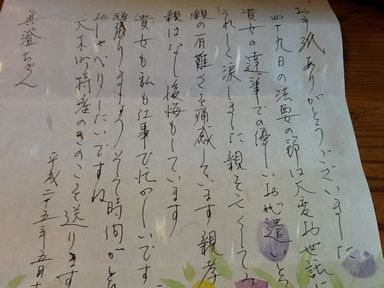 お手紙ありがとうございました
四十九日の法要の節は大変お世話に
貴女の達筆での優しいお心遣いと
うれしく涙しました 親を亡くして
親の有難さを痛感しています 親孝
親はなし後悔もしています
貴女も私も仕事で忙がしいです
頑張りましょう そして時間が
おしゃべりしたいですね
大木町特産のきのこを送ります
平成二十五年五月
真澄ちゃん